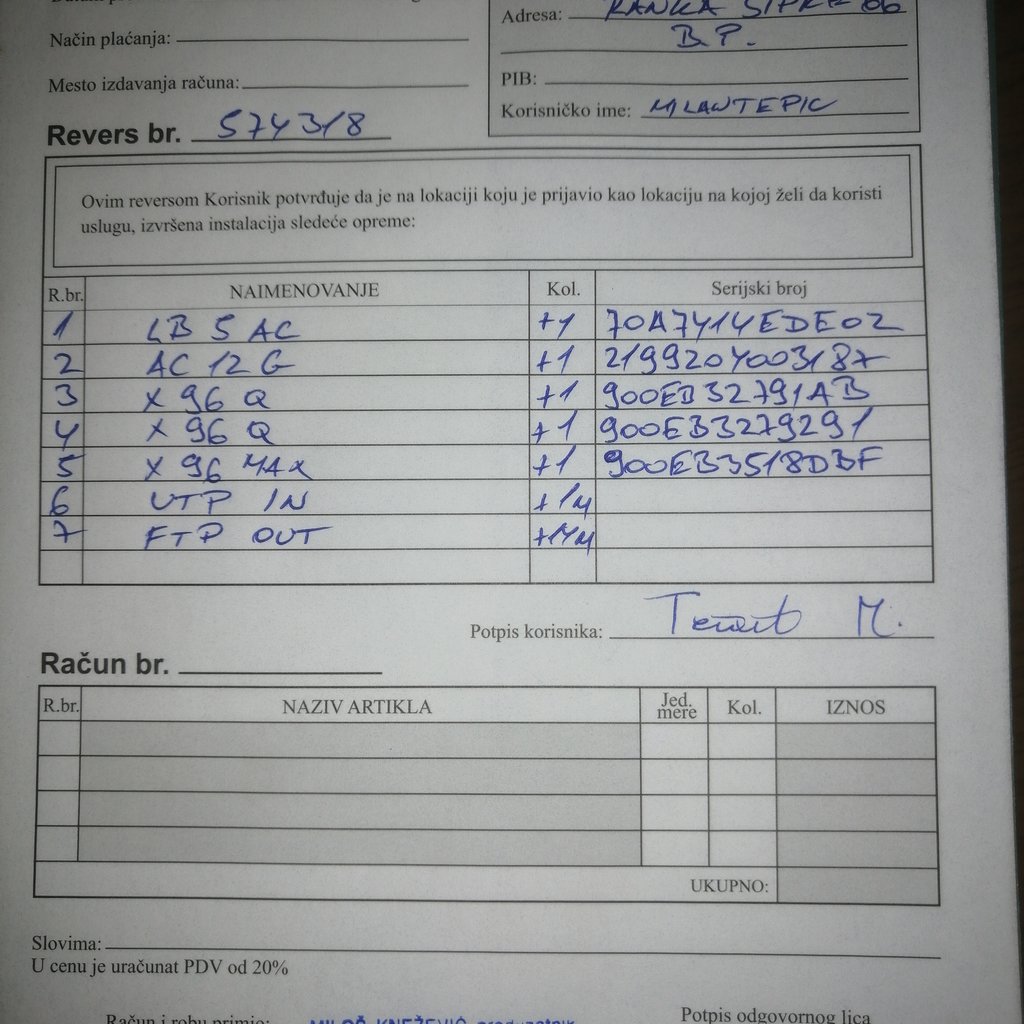 Način plaćanja:
Mesto izdavanja računa:
Adresa: RANKA
B.P.
PIB:
Korisničko ime: MILANTEPIC
Revers br. 574318
Ovim reversom Korisnik potvrđuje da je na lokaciji koju je prijavio kao lokaciju na kojoj želi da koristi
uslugu, izvršena instalacija sledeće opreme:
R.br. NAIMENOVANJE Kol. Serijski broj
1 LB 5 AC +1 70A7414EDE02
2 AC 12 G +1 2199204003187
3 X 96 Q +1 900EB32791AB
4 X 96 Q +1 900EB3279291
5 X 96 MAX +1 900EB3518DBF
6 UTP IN +1M
7 FTP OUT +14M
Potpis korisnika: M.
Račun br.
R.br. NAZIV ARTIKLA Jed. mere Kol. IZNOS
UKUPNO:
Slovima:
U cenu je uračunat PDV od 20%
Račun i robu primio: MILOŠ KNEŽEVIĆ preduzetnik
Potpis odgovornog lica